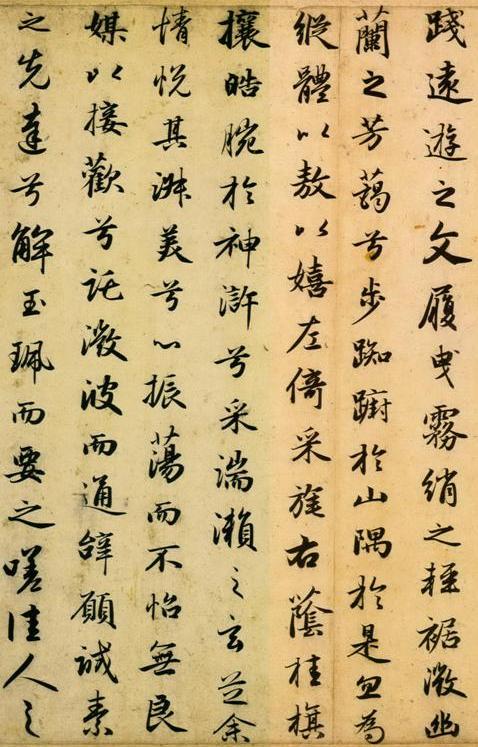 踐遠遊之文履曳霧綃之輕裾微幽
蘭之芳藹兮步踟躕於山隅於是忽為
縱體以敖以嬉左倚采旄右蔭桂旗
攘皓腕於神滸兮采湍瀨之玄芝余
情悅其淑美兮心振蕩而不怡無良
媒以接歡兮託微波而通辭願誠素
之先達兮解玉珮而要之嗟佳人之